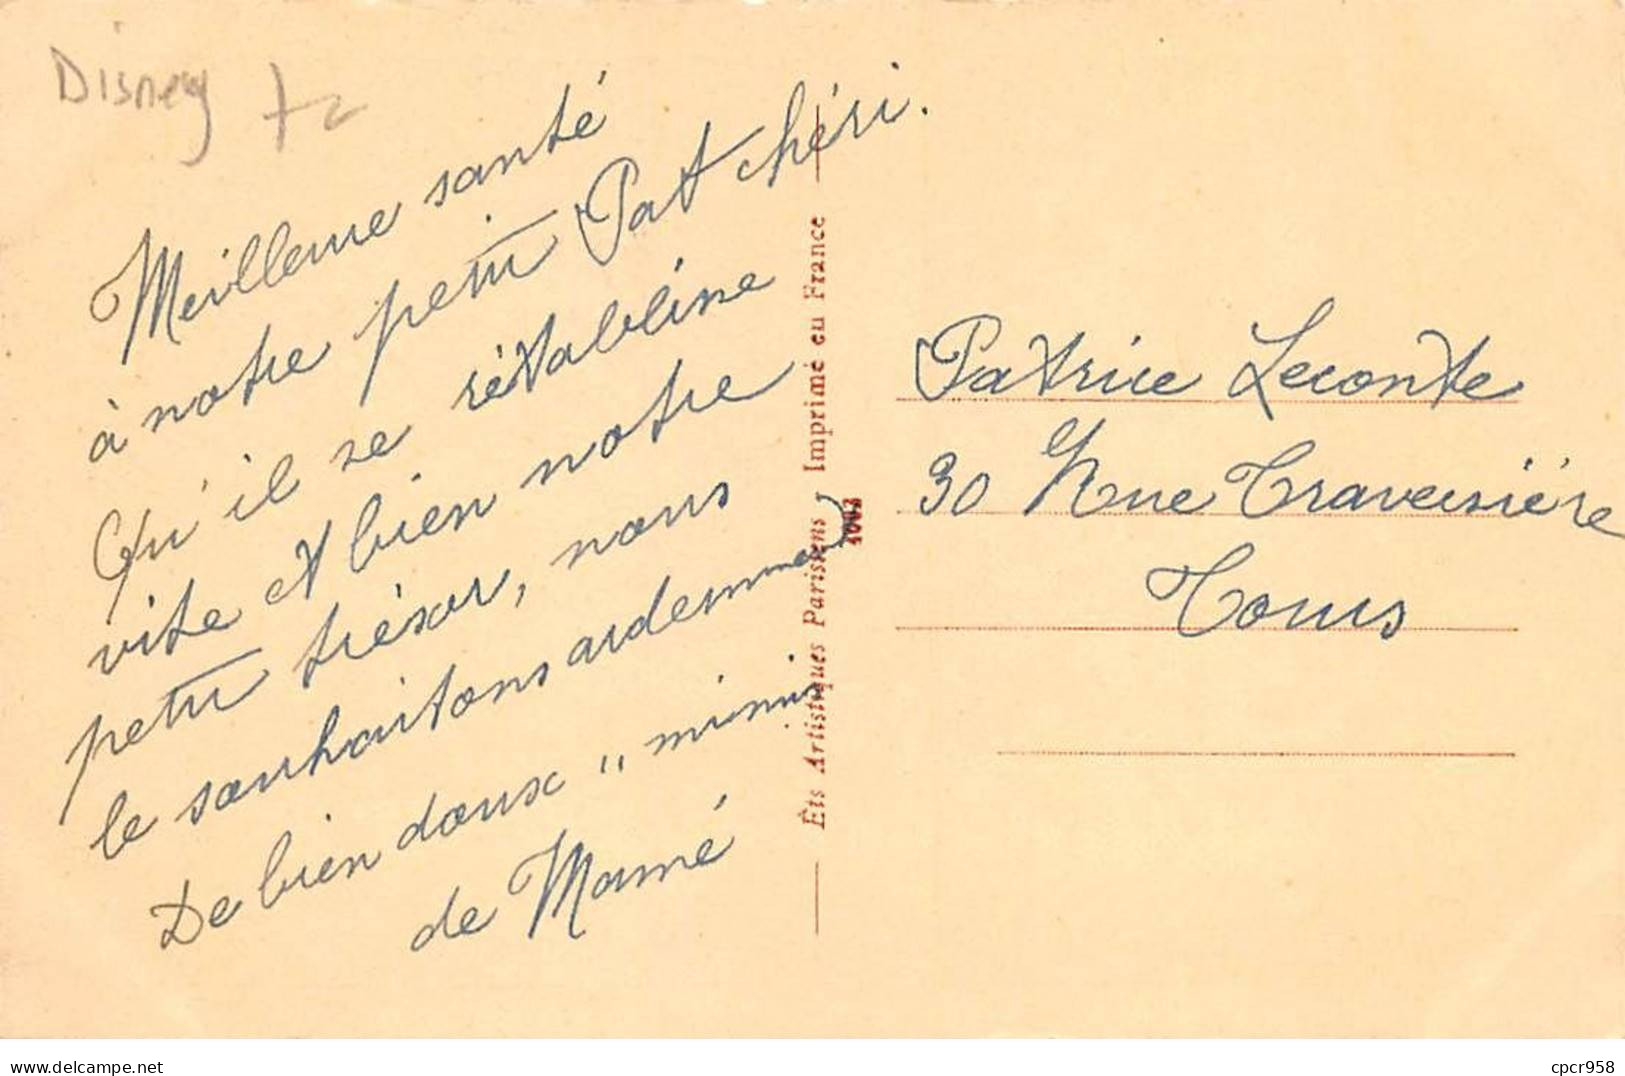 Disney
Meilleure santé
à notre petit Pat chéri.
Qu'il se rétablisse
vite et bien notre
petit trésor, nous
le souhaitons ardemment
De bien doux "mimis
de Mamé
Éts Artistiques Parisiens, Imprimé en France
Patrice Leconte
30 Rue Traversière
Tours
www.delcampe.net
cpcr958